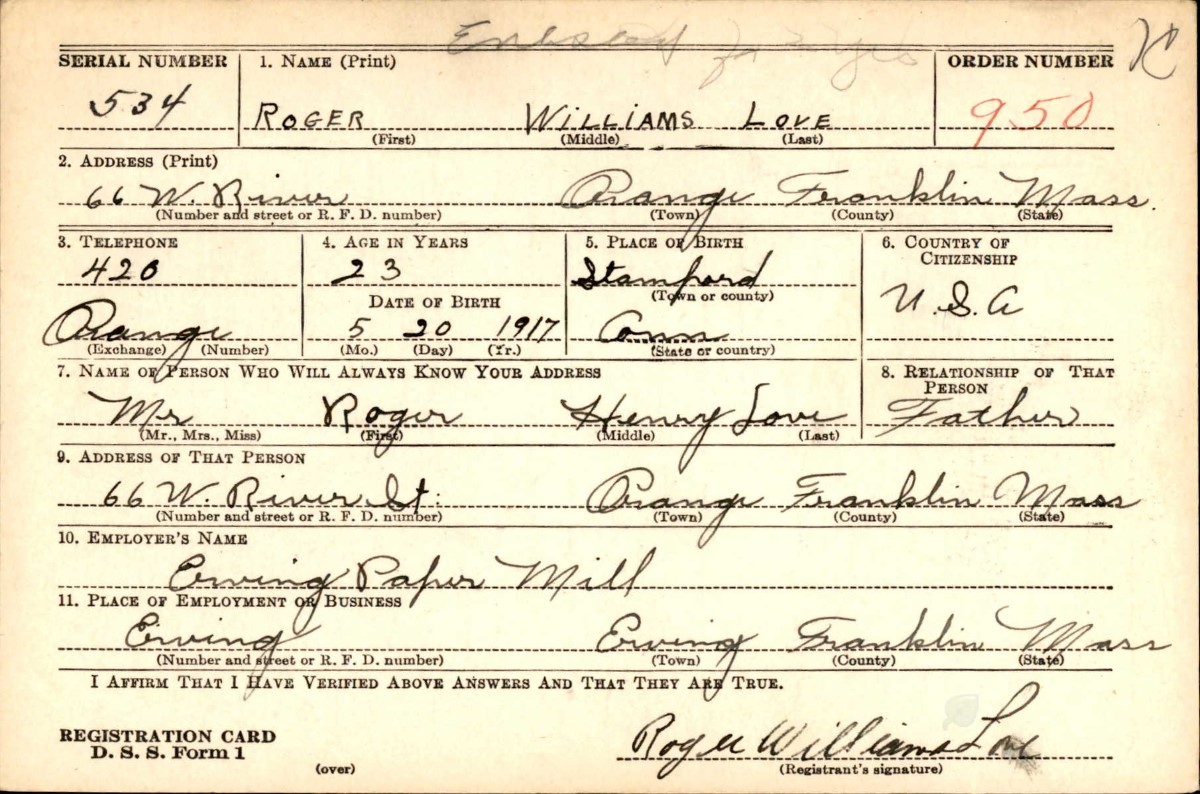 SERIAL NUMBER 1. NAME (Print) ORDER NUMBER
534 ROGER WILLIAMS LOVE 950
(First) (Middle) (Last)
2. ADDRESS (Print)
66 W. River Orange Franklin Mass.
(Number and street or R. F. D. number) (Town) (County) (State)
3. TELEPHONE 4. AGE IN YEARS 5. PLACE OF BIRTH 6. COUNTRY OF CITIZENSHIP
420 23 Stamford U.S.A
(Town or county)
DATE OF BIRTH
Orange 5 20 1917 Conn
(Exchange) (Number) (Mo.) (Day) (Yr.) (State or country)
7. NAME OF PERSON WHO WILL ALWAYS KNOW YOUR ADDRESS 8. RELATIONSHIP OF THAT PERSON
Mr Roger Henry Love Father
(Mr., Mrs., Miss) (First) (Middle) (Last)
9. ADDRESS OF THAT PERSON
66 W. River St. Orange Franklin Mass
(Number and street or R. F. D. number) (Town) (County) (State)
10. EMPLOYER'S NAME
Erving Paper Mill
11. PLACE OF EMPLOYMENT OR BUSINESS
Erving Erving Franklin Mass
(Number and street or R. F. D. number) (Town) (County) (State)
I AFFIRM THAT I HAVE VERIFIED ABOVE ANSWERS AND THAT THEY ARE TRUE.
REGISTRATION CARD
D. S. S. Form 1 Roger Williams Love
(over) (Registrant's signature)